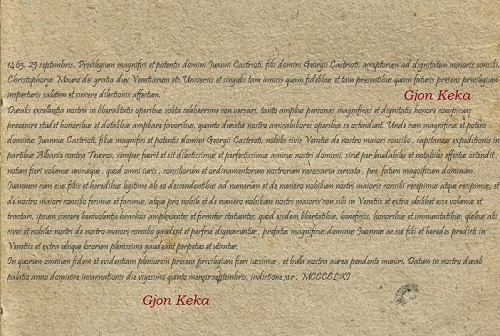 1463, 29 septembris. Privilegium magnifici et potentis domini Iuanni Castrioti, filii domini Georgii Castrioti, acceptorum ad dignitatem maioris consilii.
Christophorus Mauro dei gratia dux Venetiarum etc. Universis et singulis tam amicis quam fidelibus et tam presentibus quam futuris presens privilegium
inspecturis salutem et sincere dilectionis affectum.
Gjon Keka
Ducalis excellentia nostra in liberalitatis operibus solita celeberrime
personarum et dotibus ampliare favoribus, quanto ducatus nostre amicabiliores operibus se ostendunt. Unde cum magnificus et potens
dominus Iuannus Castrioti, filius magnifici et potentis domini Georgii Castrioti, nobilis civis Venetus de nostro maiori consilio, capitaneus expeditionis in
partibus Albanie contra Teucros, semper fuerit et sit dilectissimus et perfectissimus amicus nostri domini, sive per laudabiles et notabiles effectus ostendit,
notum fieri volumus unicuique, quod omni iuris, consiliorum et ordinamentorum nostrorum necessaria servata, pre fatum magnificum dominum
Iuannem cum eius filiis et heredibus legitime ab eo descendentibus ad numerum et de numero nobilium nostri maioris consilii recepimus atque recipimus, et
de nostro maiori consilio fecimus et facimus, atque pro nobile et de numero nobilium nostri maioris consilii in Venetiis et extra ubilibet esse volumus et
tractari, ipsum sincere benivolentie brachiis amplexantes et firmiter statuentes, quod eisdem libertatibus, beneficiis, honoribus et immunitatibus, quibus alii
cives et nobiles nostri de nostro maiori consilio gaudent et perfrui dignoscuntur, prefatus magnificus dominus Iuannus ac sui filii et heredes predicti in
Venetiis et extra ubique locorum plenissime gaudeant perpetuo et utantur.
In quorum omnium fidem et evidentiam pleniorem presens privilegium fieri iussimus, et bulla nostra aurea pendente muniri. Datum in nostro ducali
palatio anno dominice incarnationis die vigesimo quinto mensis septembris, indictione MCCCCLXI
Gjon Keka